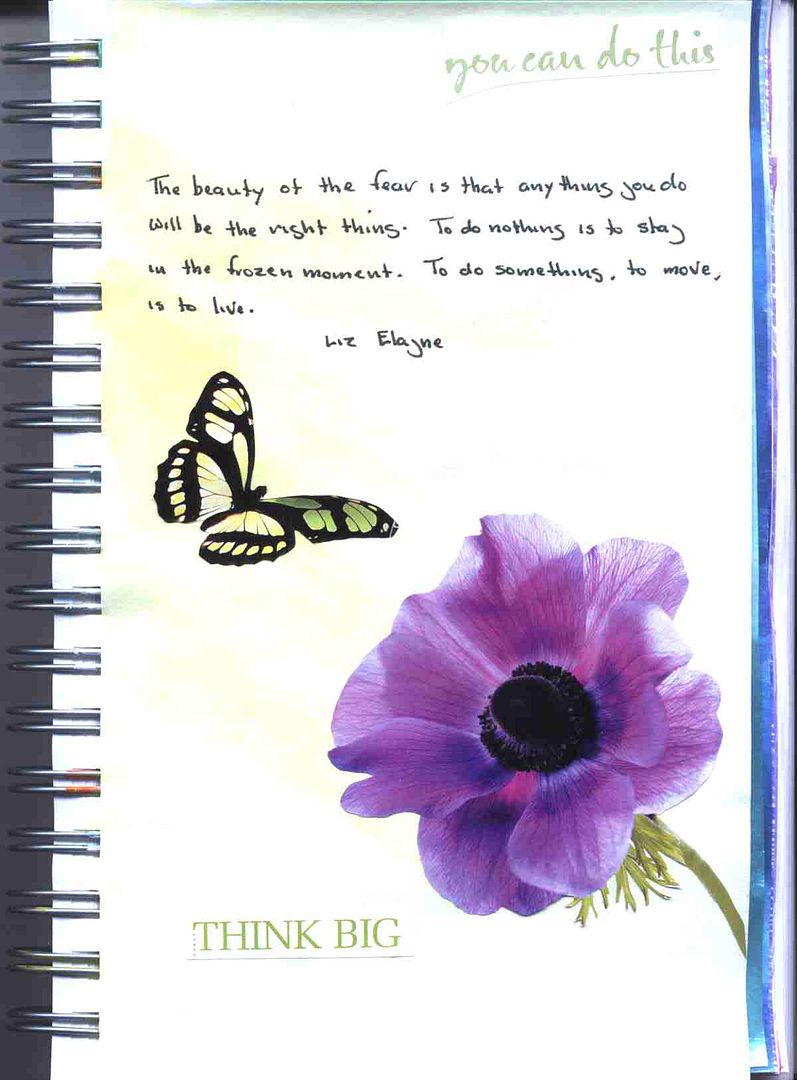 you can do this
The beauty of the fear is that any thing you do
will be the right thing. To do nothing is to stay
in the frozen moment. To do something, to move,
is to live.
Liz Elayne
THINK BIG